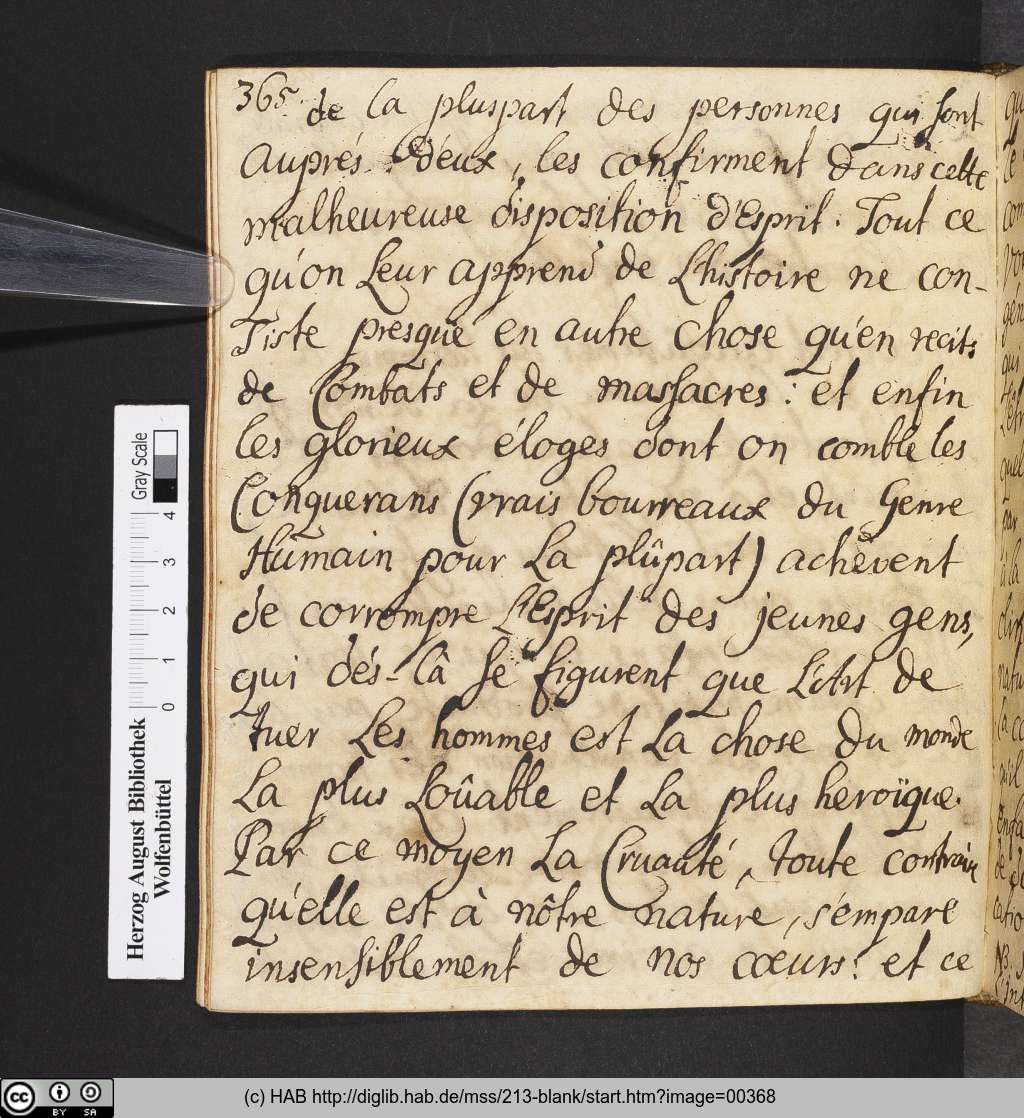 365. de la pluspart des personnes qui sont
Auprés d'eux, les confirment dans cette
malheureuse disposition d'Esprit. Tout ce
qu'on Leur apprend de L'histoire ne con-
siste presque en autre chose qu'en recits
de Combats et de massacres: et enfin
les glorieux éloges dont on comble les
Conquerans (vrais bourreaux du Genre
Humain pour La plûpart) achèvent
de corrompre L'Esprit des jeunes gens,
qui dés-là se figurent que L'Art de
tuer Les hommes est La chose du monde
La plus Loûable et La plus heroïque.
Par ce moyen La Cruauté, toute contraire
qu'elle est à nôtre nature, s'empare
insensiblement de nos cœurs: et ce
Herzog August Bibliothek
Wolfenbüttel
0 1 2 3 4
Gray Scale
cc BY SA
(c) HAB http://diglib.hab.de/mss/213-blank/start.htm?image=00368